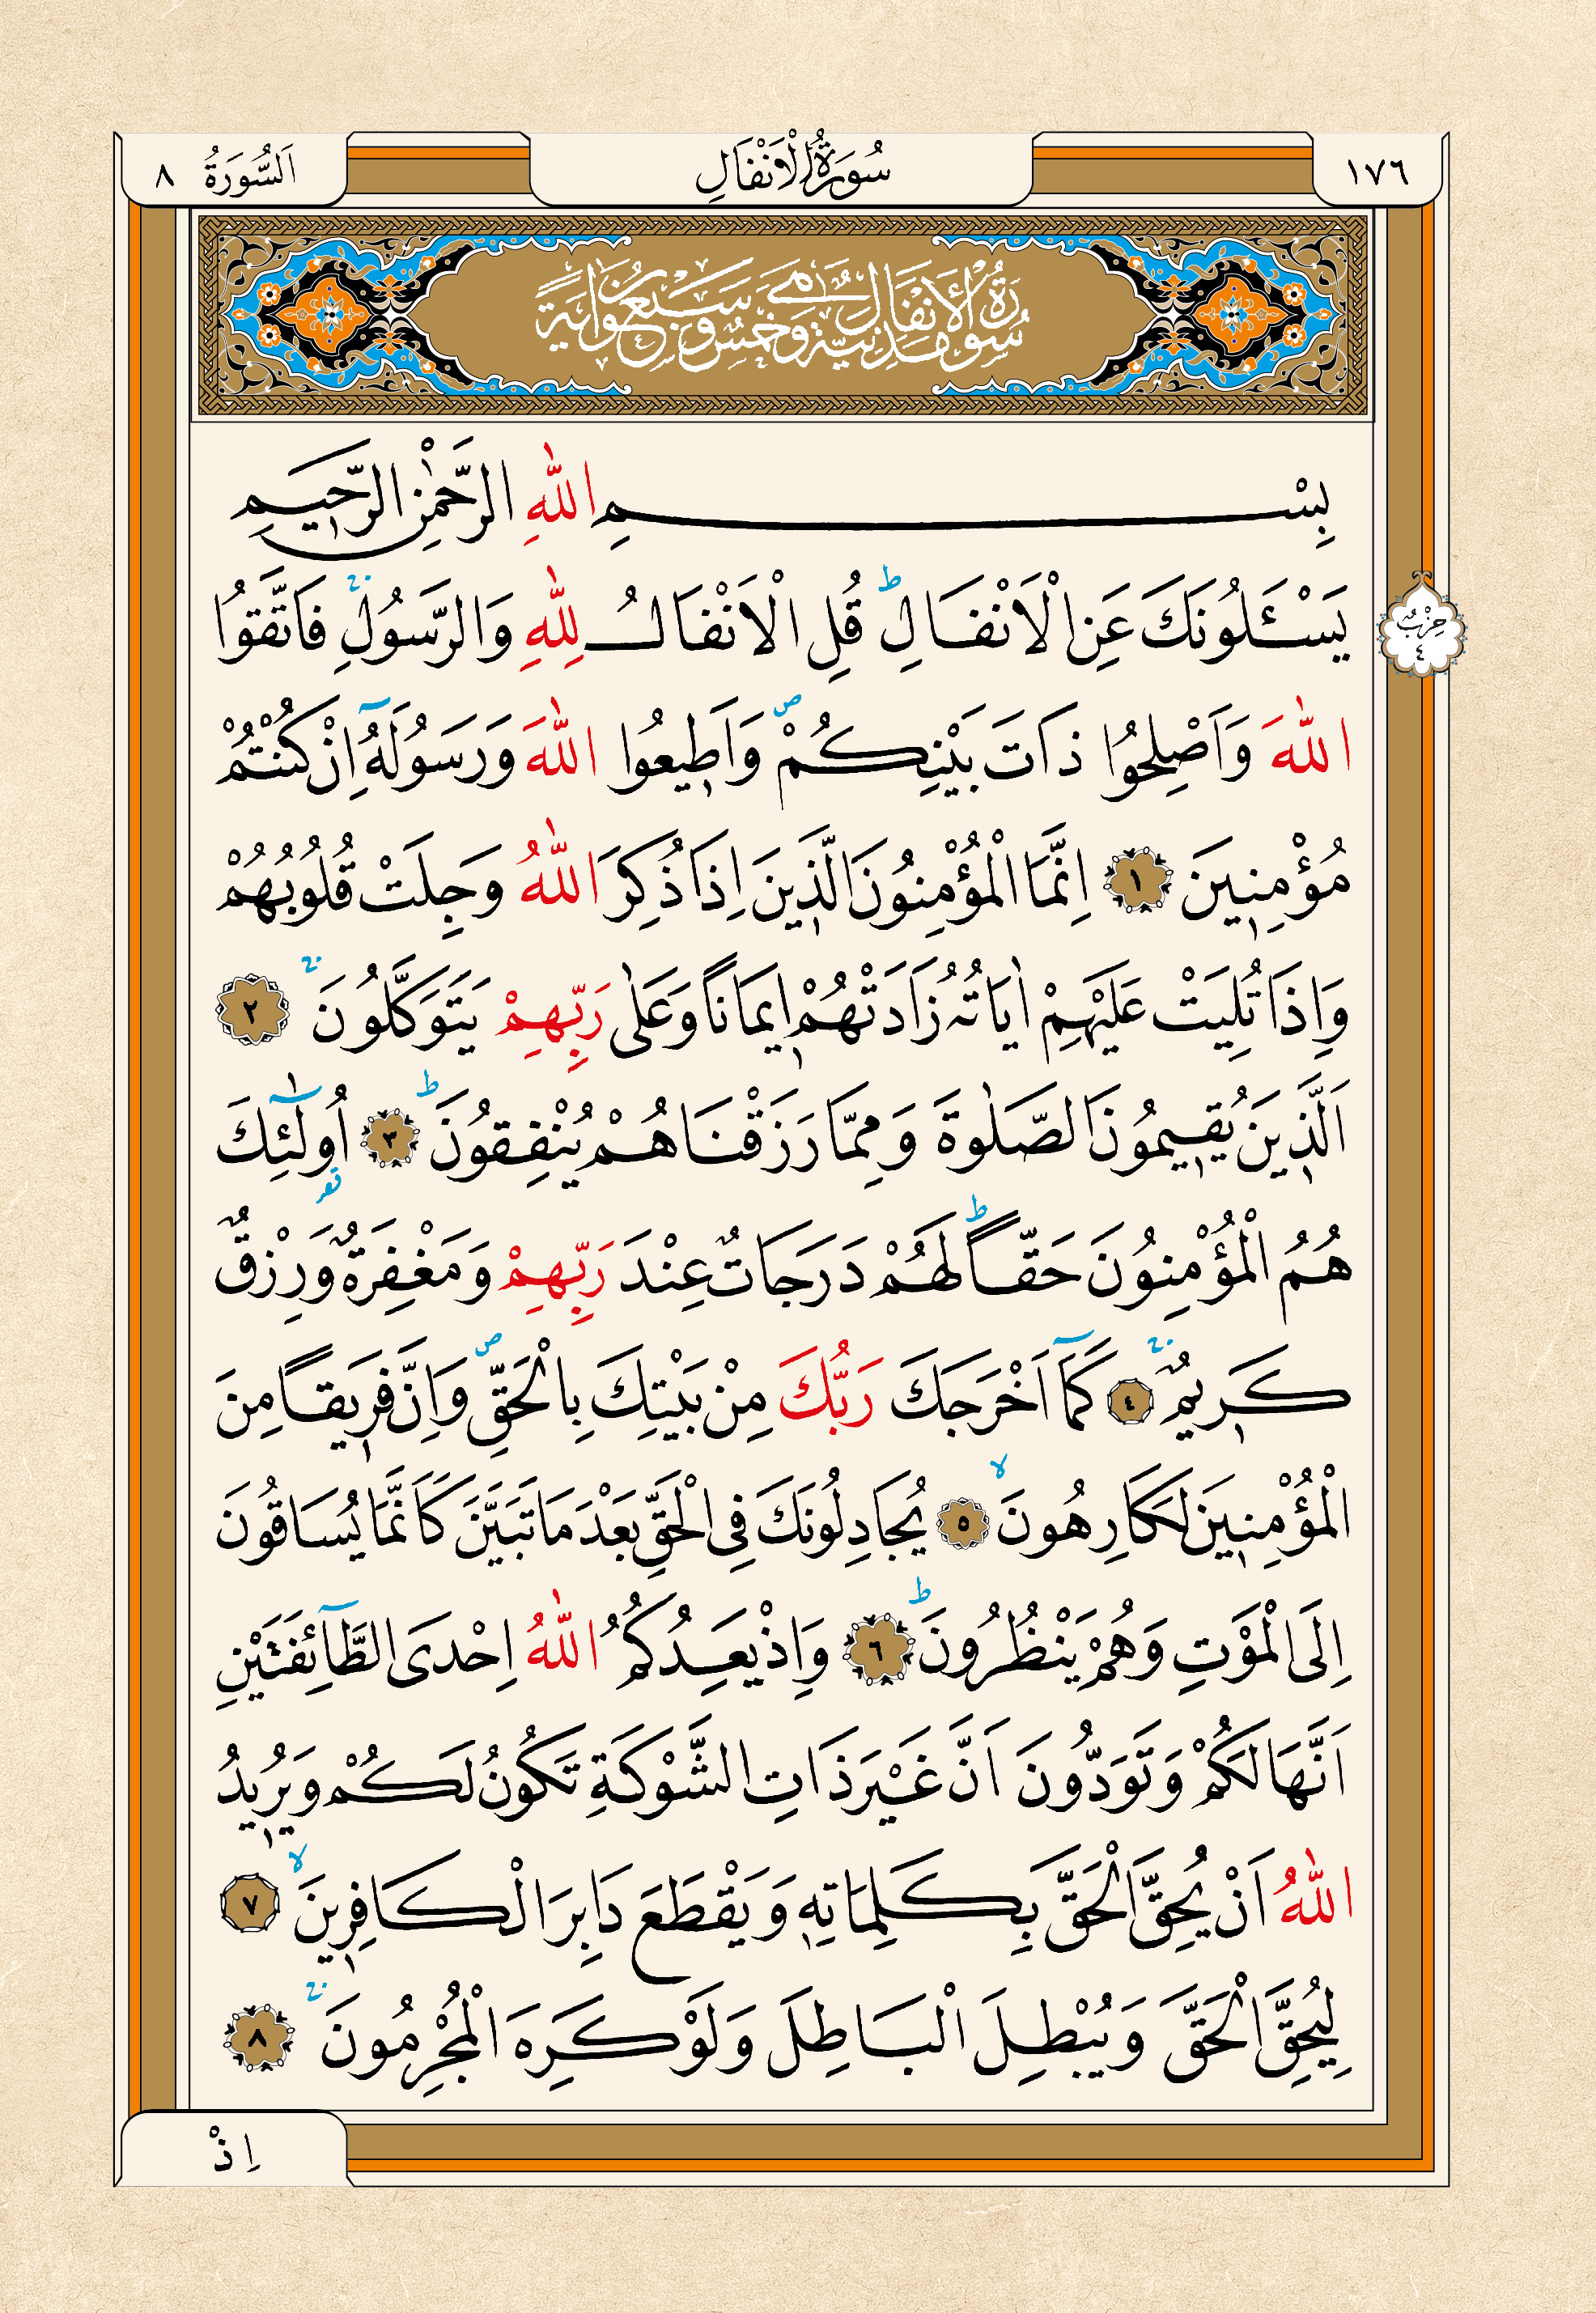 ١٧٦
سُورَةُ الْاَنْفَالِ
اَلسُّورَةُ ٨
سُورَةُ الْاَنْفَالِ مَدَنِيَّةٌ وَهِيَ خَمْسٌ وَسَبْعُونَ اٰيَةً
بِسْمِ اللّٰهِ الرَّحْمٰنِ الرَّحِيمِ
حِزْبٌ ٤
يَسْـَٔلُونَكَ عَنِ الْاَنْفَالِۜ قُلِ الْاَنْفَالُ لِلّٰهِ وَالرَّسُولِۚ فَاتَّقُوا
اللّٰهَ وَاَصْلِحُوا ذَاتَ بَيْنِكُمْۖ وَاَطِيعُوا اللّٰهَ وَرَسُولَهُٓ اِنْ كُنْتُمْ
مُؤْمِنِينَ ١ اِنَّمَا الْمُؤْمِنُونَ الَّذِينَ اِذَا ذُكِرَ اللّٰهُ وَجِلَتْ قُلُوبُهُمْ
وَاِذَا تُلِيَتْ عَلَيْهِمْ اٰيَاتُهُ زَادَتْهُمْ اِيمَانًا وَعَلٰى رَبِّهِمْ يَتَوَكَّلُونَۚ ٢
اَلَّذِينَ يُقِيمُونَ الصَّلٰوةَ وَمِمَّا رَزَقْنَاهُمْ يُنْفِقُونَۜ ٣ اُولٰٓئِكَ
هُمُ الْمُؤْمِنُونَ حَقًّاۜ لَهُمْ دَرَجَاتٌ عِنْدَ رَبِّهِمْ وَمَغْفِرَةٌ وَرِزْقٌ
كَرِيمٌۚ ٤ كَمَٓا اَخْرَجَكَ رَبُّكَ مِنْ بَيْتِكَ بِالْحَقِّۖ وَاِنَّ فَرِيقًا مِنَ
الْمُؤْمِنِينَ لَكَارِهُونَۙ ٥ يُجَادِلُونَكَ فِي الْحَقِّ بَعْدَ مَا تَبَيَّنَ كَاَنَّمَا يُسَاقُونَ
اِلَى الْمَوْتِ وَهُمْ يَنْظُرُونَۜ ٦ وَاِذْ يَعِدُكُمُ اللّٰهُ اِحْدَى الطَّٓائِفَتَيْنِ
اَنَّهَا لَكُمْ وَتَوَدُّونَ اَنَّ غَيْرَ ذَاتِ الشَّوْكَةِ تَكُونُ لَكُمْ وَيُرِيدُ
اللّٰهُ اَنْ يُحِقَّ الْحَقَّ بِكَلِمَاتِهِ وَيَقْطَعَ دَابِرَ الْكَافِرِينَۙ ٧
لِيُحِقَّ الْحَقَّ وَيُبْطِلَ الْبَاطِلَ وَلَوْ كَرِهَ الْمُجْرِمُونَۚ ٨
اِذْ